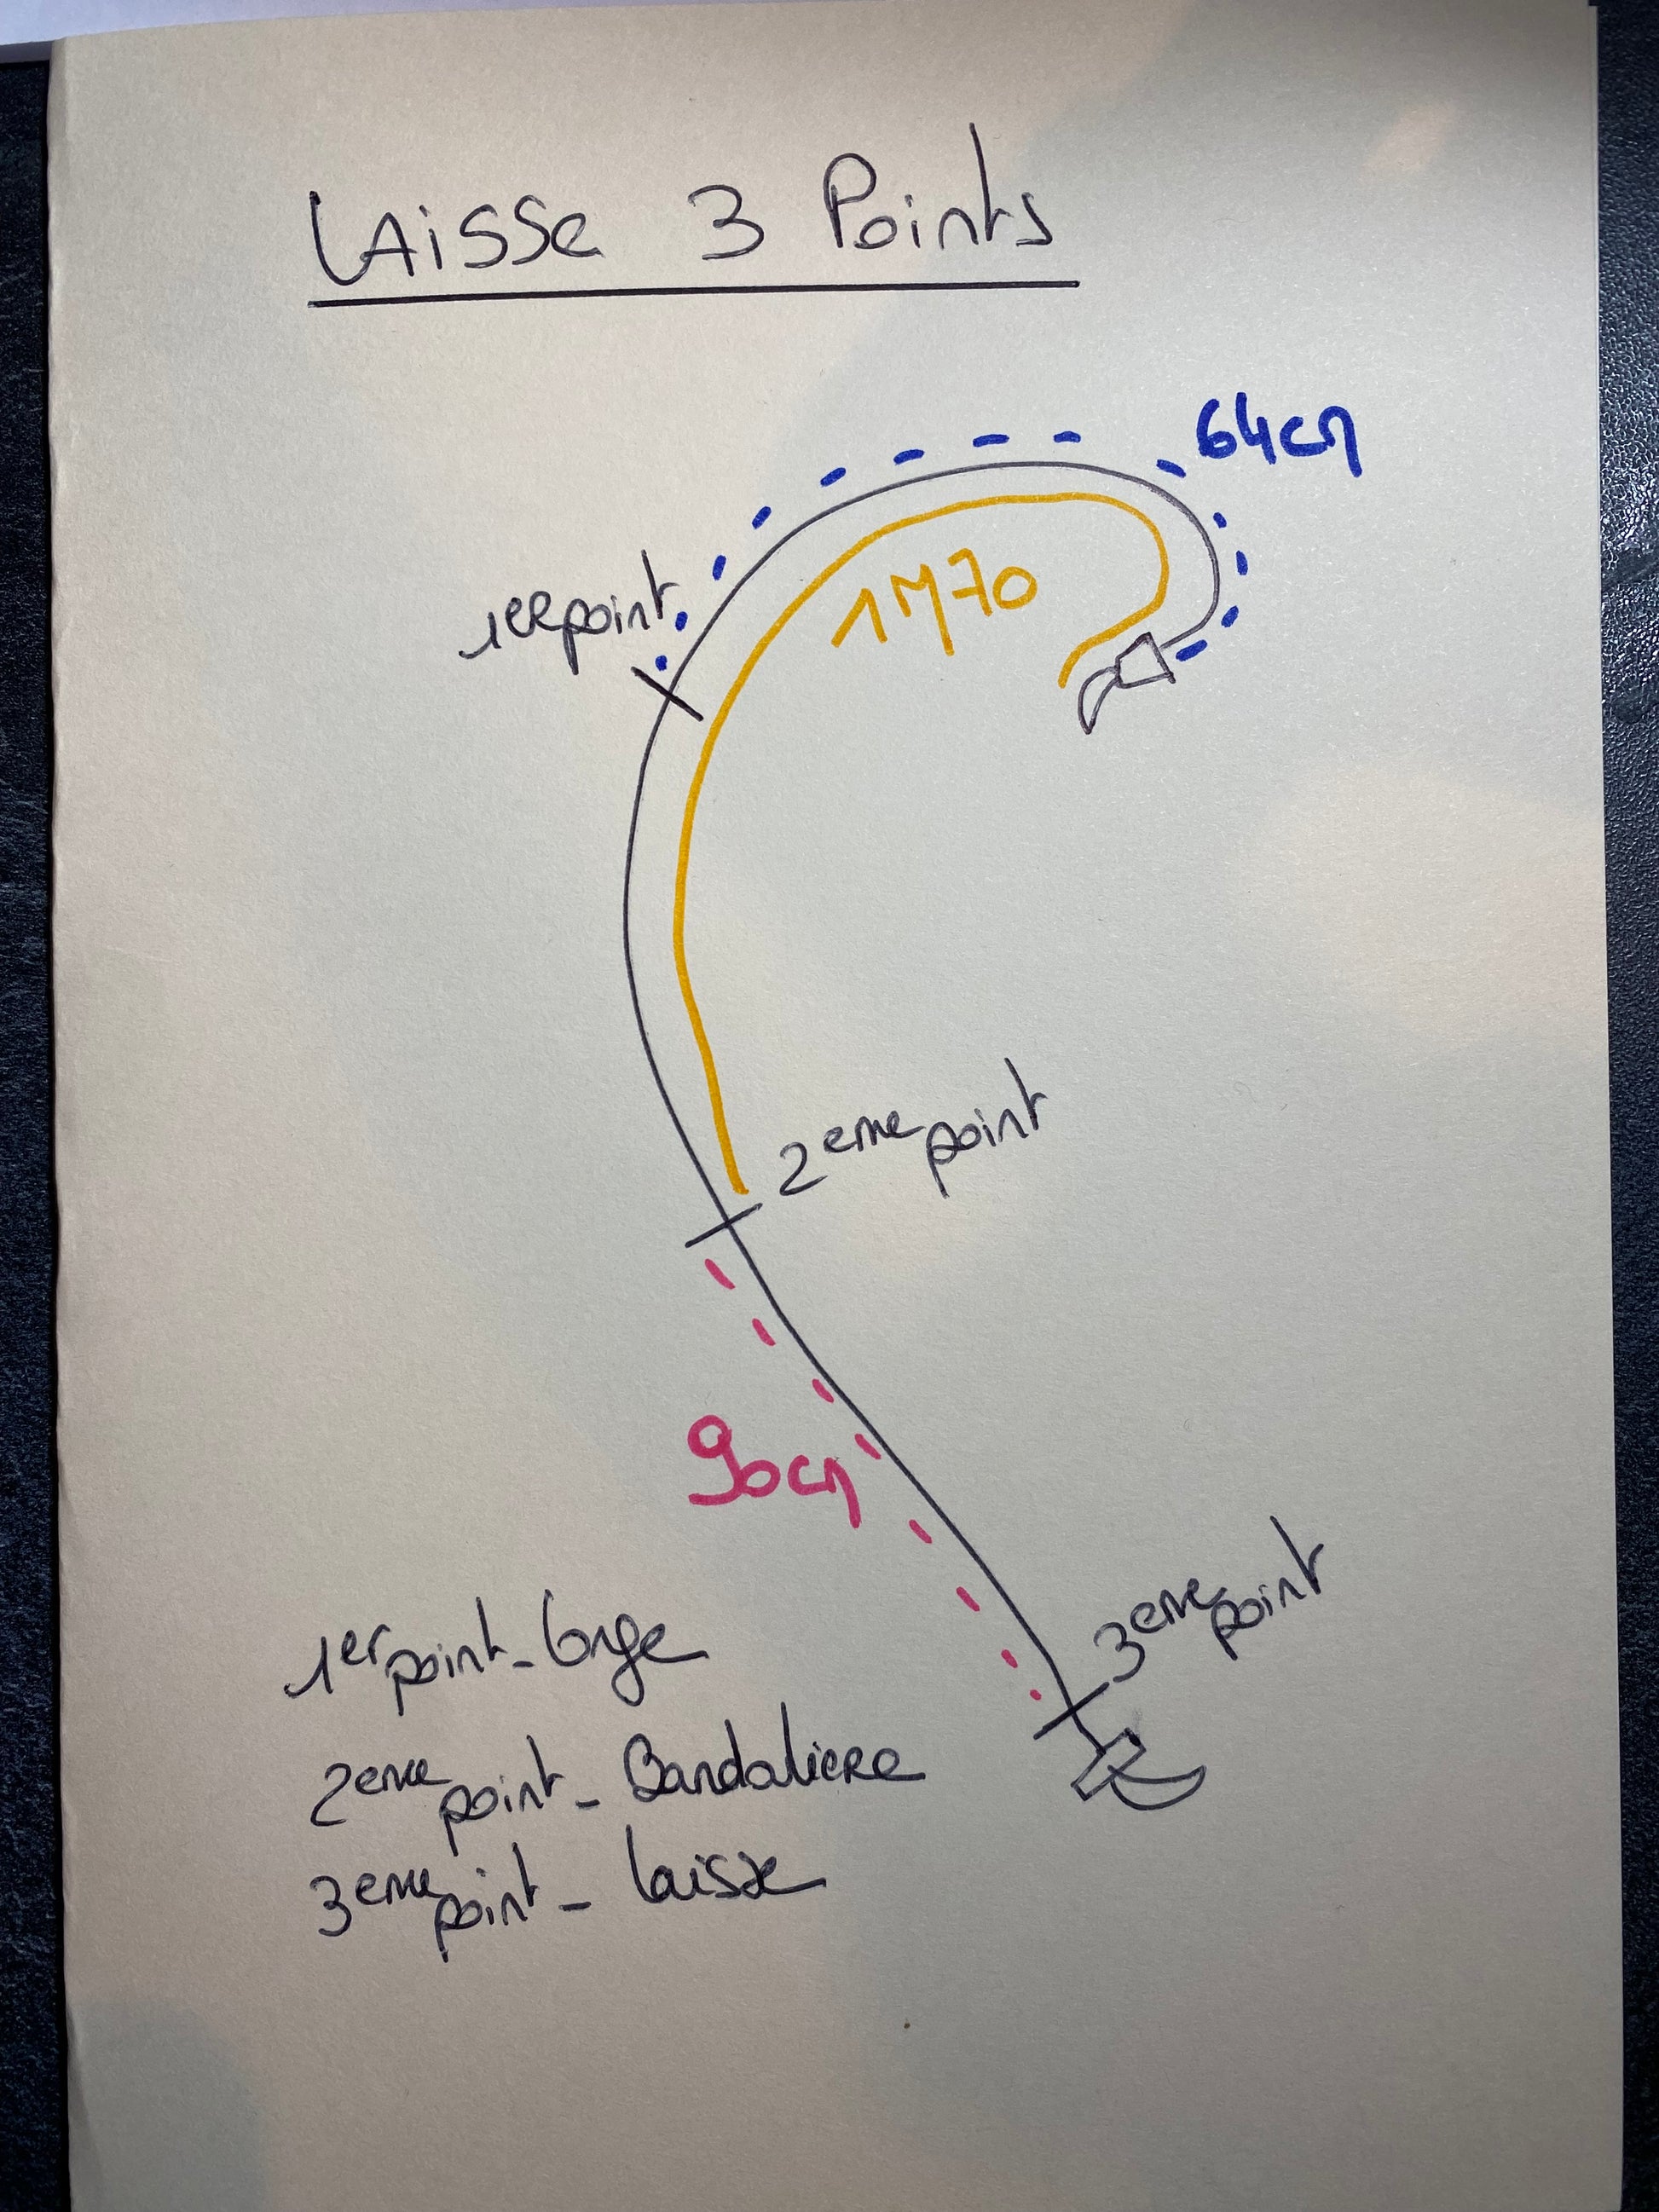 LAISSE 3 Points
64cm
1er point
1M70
2eme point
90cm
3eme point
1er point - longe
2eme point - Bandaliere
3eme point - laisse